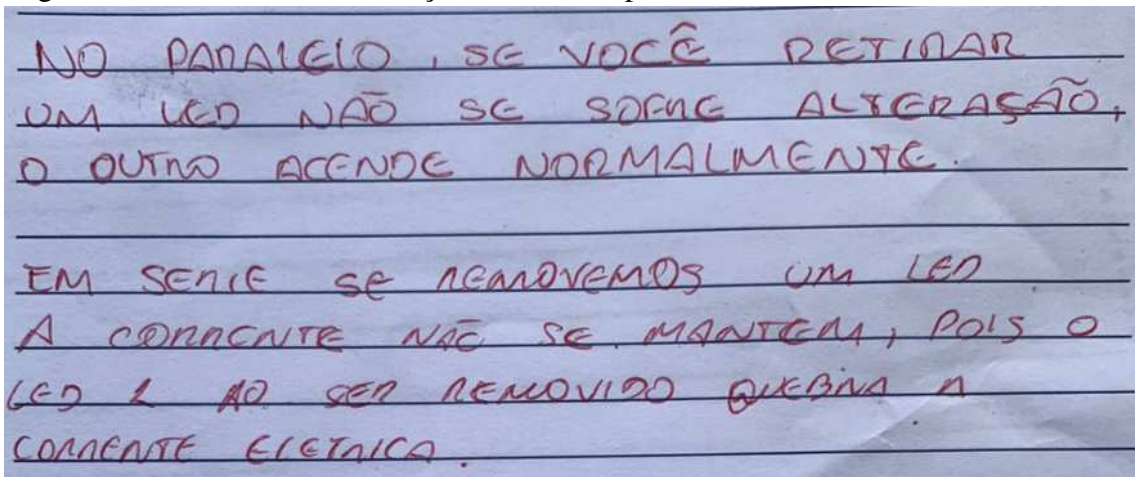 NO PARALELO, SE VOCÊ RETIRAR
UM LED NÃO SE SOFRE ALTERAÇÃO,
O OUTRO ACENDE NORMALMENTE.
EM SERIE SE REMOVEMOS UM LED
A CORRENTE NÃO SE MANTEM, POIS O
LED 1 AO SER REMOVIDO QUEBRA A
CORRENTE ELETRICA.